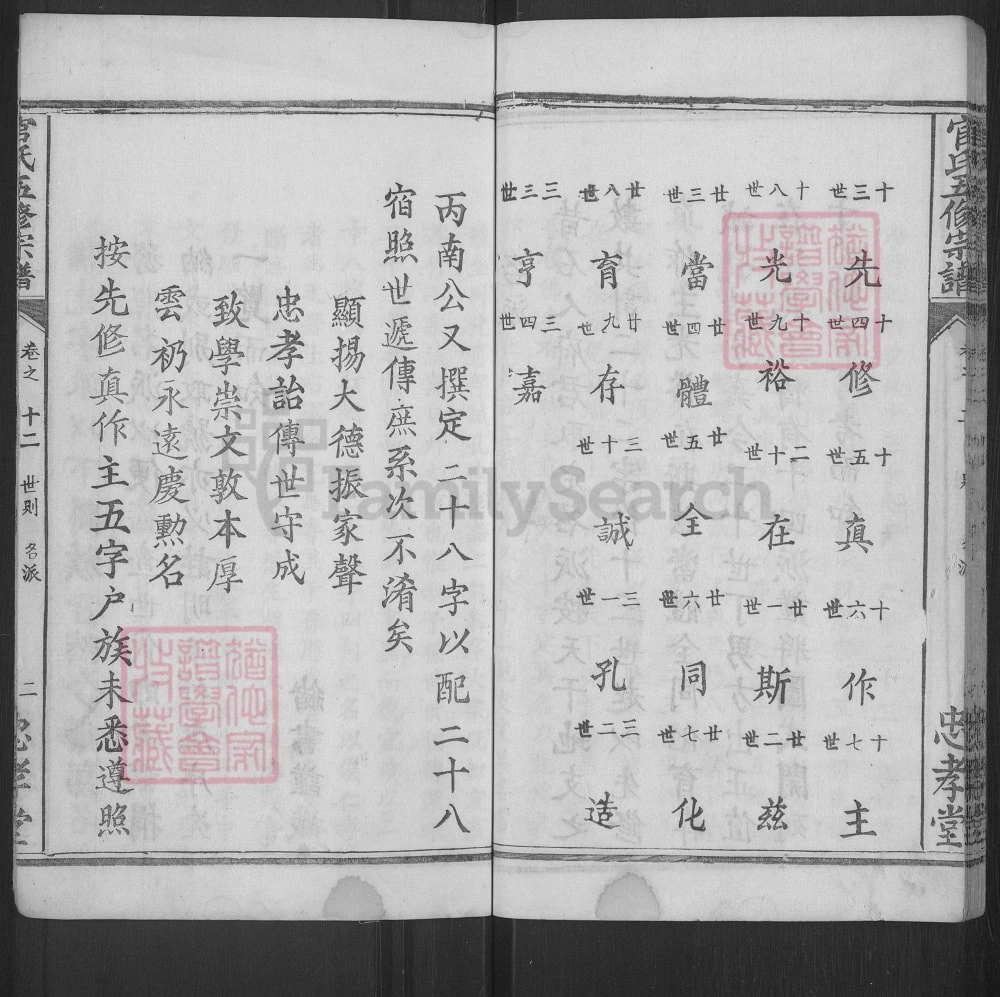 官氏五修宗譜
忠孝堂
十三世 先 十四世 修 十五世 真 十六世 作 十七世 主
十八世 光 十九世 裕 二十世 在 廿一世 斯 廿二世 茲
廿三世 當 廿四世 體 廿五世 全 廿六世 同 廿七世 化
廿八世 育 廿九世 存 三十世 誠 三一世 孔 三二世 造
三三世 亨 三四世 嘉
丙南公又撰定二十八字以配二十八
宿照世遞傳庶系次不淆矣
顯揚大德振家聲
忠孝詒傳世守成
致學崇文敦本厚
雲礽永遠慶勲名
按先修真作主五字户族未悉遵照
官氏五修宗譜
卷之十二 世則 名派
二
忠孝堂
FamilySearch